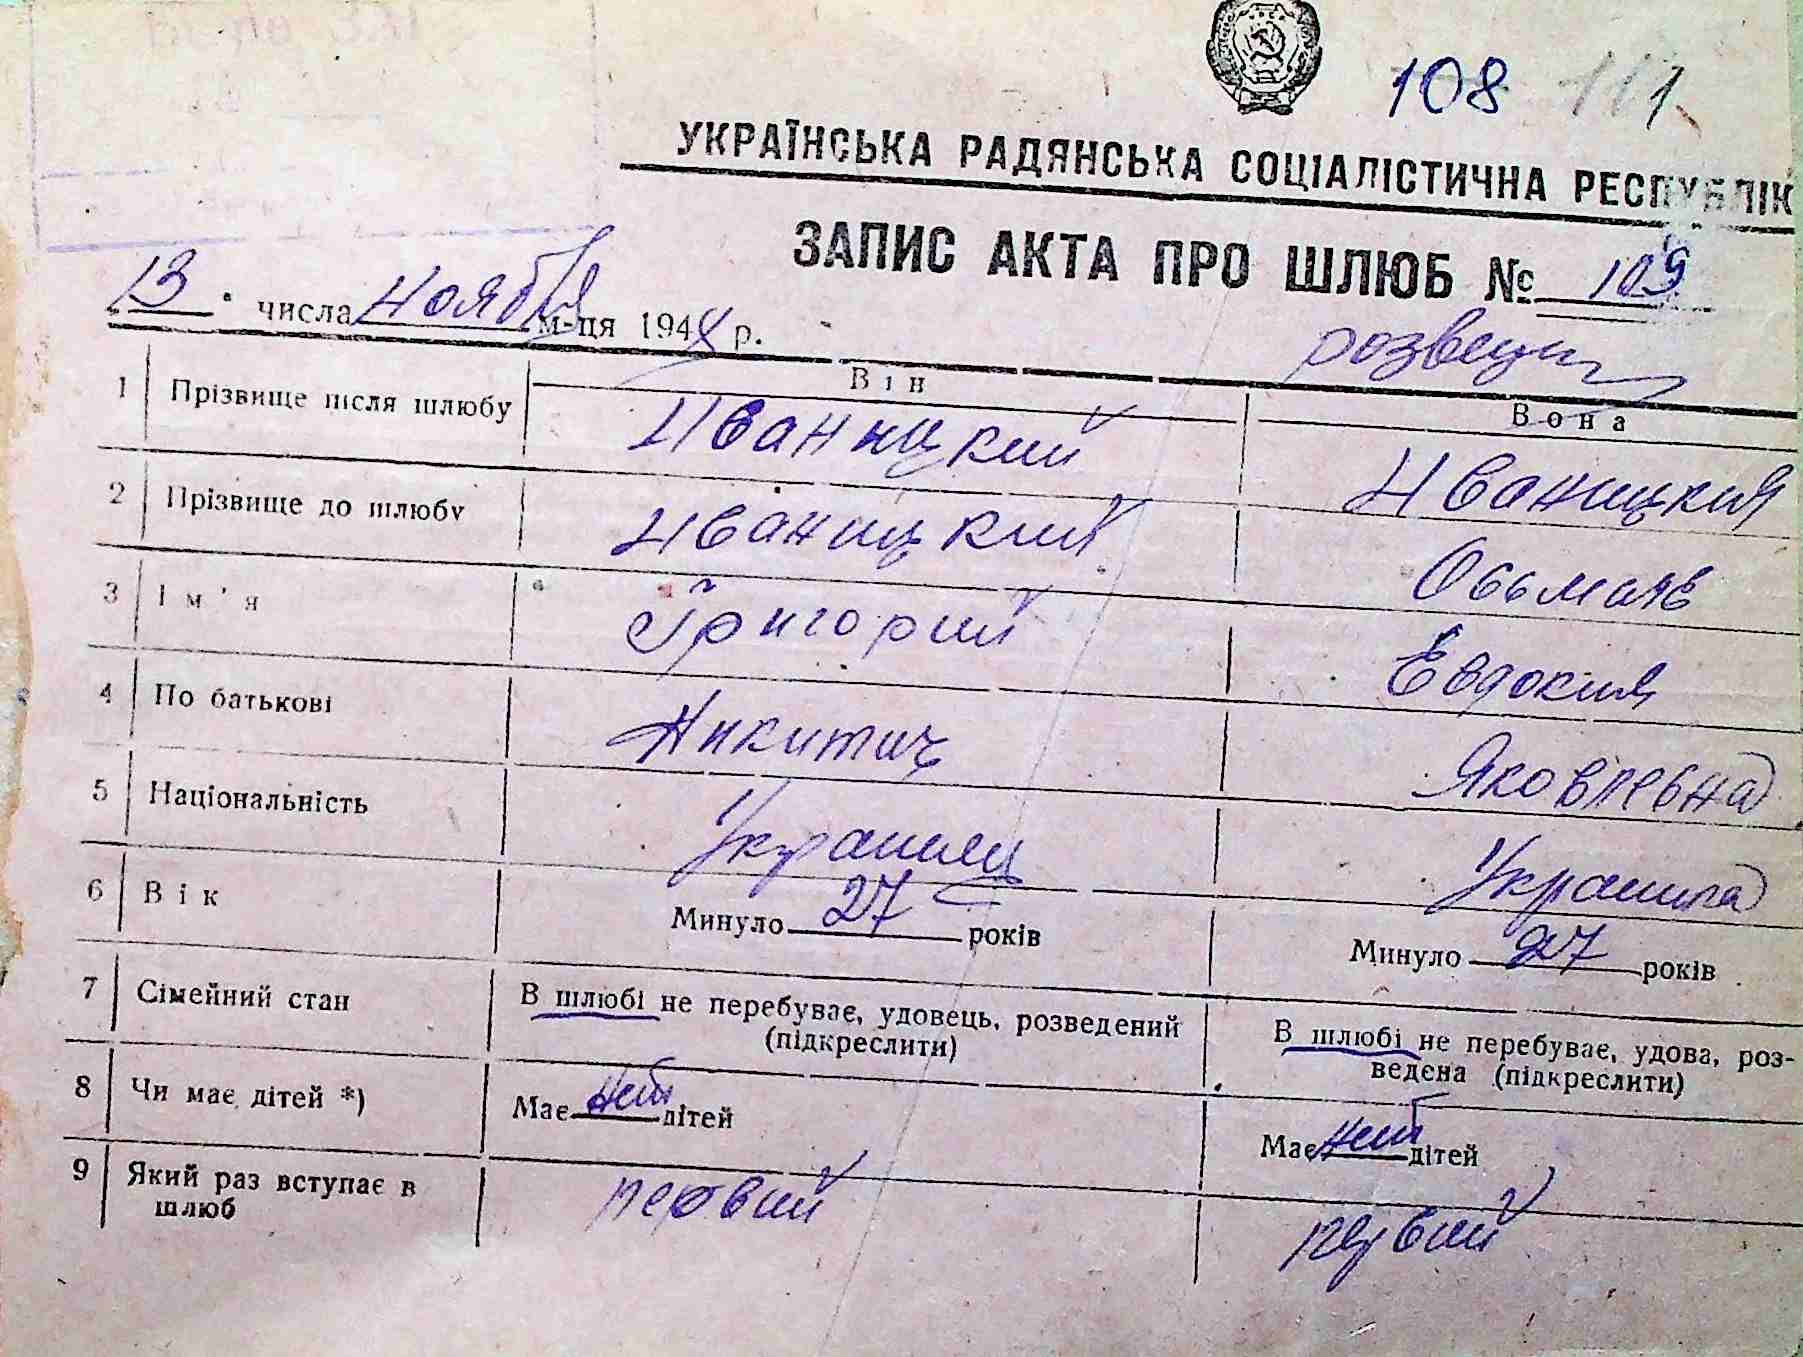 108 111
УКРАЇНСЬКА РАДЯНСЬКА СОЦІАЛІСТИЧНА РЕСПУБЛІК
ЗАПИС АКТА ПРО ШЛЮБ № 109
13 числа ноября м-ця 194 р.
Він Вона
1 Прізвище після шлюбу Иваницкий Иваницкия
2 Прізвище до шлюбу Иваницкий
3 Ім'я Григорий Евдокия
4 По батькові Никитич Яковлевна
5 Національність Украинец Украинка
6 Вік Минуло 27 років Минуло 27 років
7 Сімейний стан В шлюбі не перебуває, удовець, розведений (підкреслити) В шлюбі не перебуває, удова, роз-
ведена (підкреслити)
8 Чи має дітей *) Має нет дітей Має нет дітей
9 Який раз вступає в шлюб первий первий